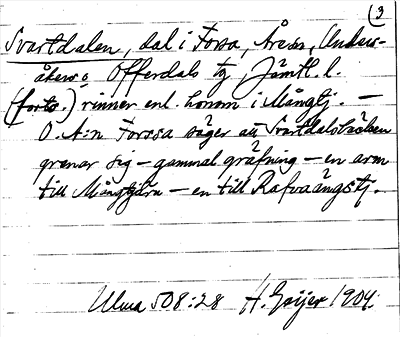 (3
Svartdalen, dal i Forsa, Åresn, Unders-
åkers o Offerdals tg, Jämtl. l.
(forts.) rinner enl. honom i Mångtj. —
O. A:n Forssa säger att Svartdalsbäcken
grenar sig — gammal gräfning — en arm
till Mångtjärn — en till Rafvaängstj.
Ulma 508:28 H. Geijer 1904.